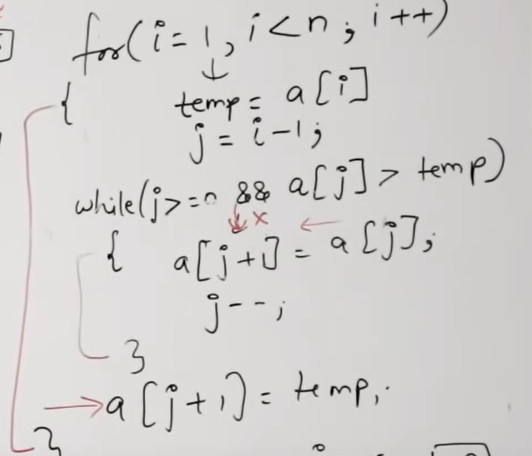 for(i=1, i<n; i++)
{ temp = a[i]
j = i-1;
while(j>=0 && a[j] > temp)
{ a[j+1] = a[j];
j--;
}
a[j+1] = temp;
}